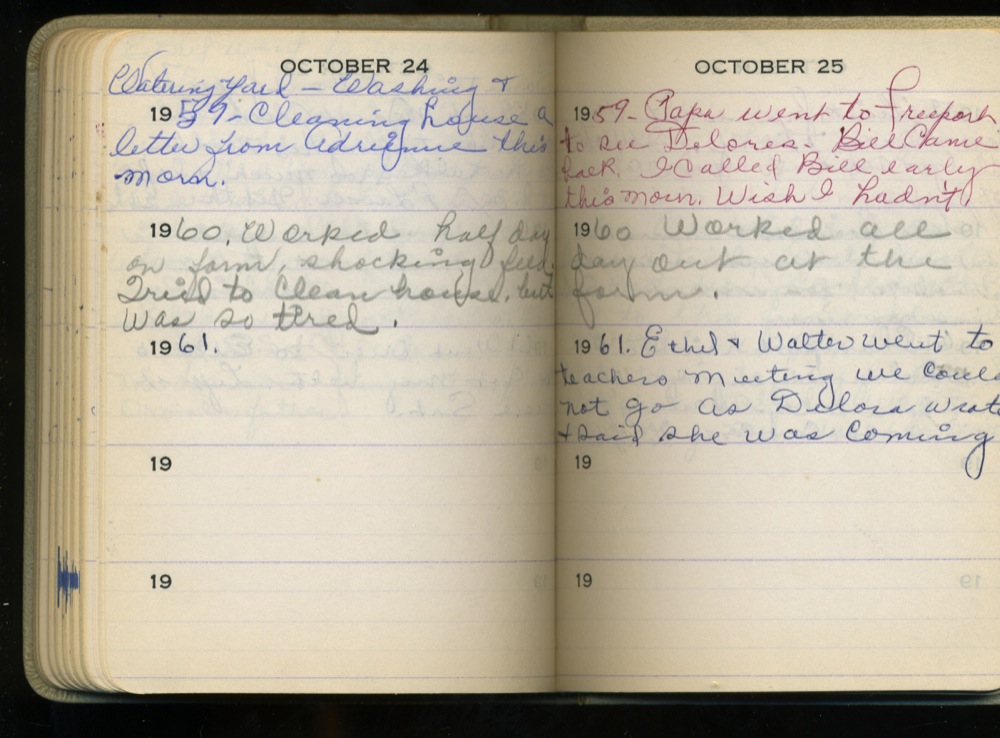 OCTOBER 24
Watering yard - Washing &
1959 - Cleaning house a
letter from Adrienne this
morn.
1960. Worked half day
on farm, shocking feed.
Tried to clean house, but
was so tired.
1961.
19
19
OCTOBER 25
1959 - Papa went to Freeport
to see Delores. Bill Came
back. I Called Bill early
this morn. Wish I hadn't.
1960 Worked all
day out at the
farm.
1961. Ethel & Walter went to
teachers meeting we could
not go as Delora wrote
& said she was Coming
19
19